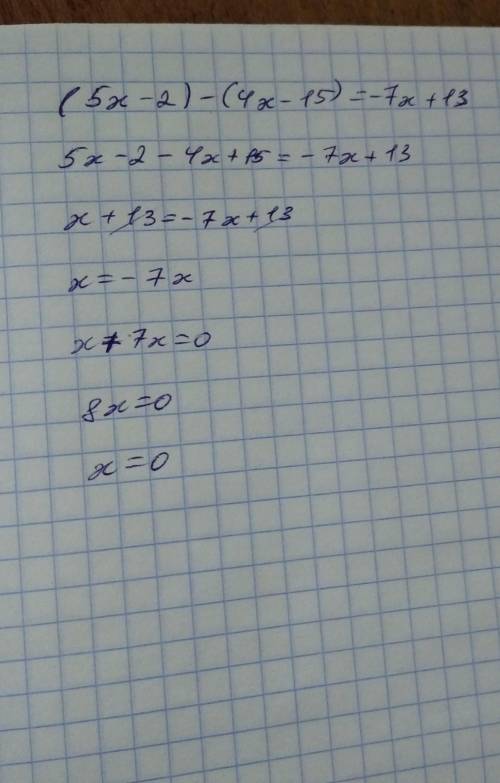 (5x-2)-(4x-15)=-7x+13
5x-2-4x+15=-7x+13
x+13=-7x+13
x=-7x
x+7x=0
8x=0
x=0